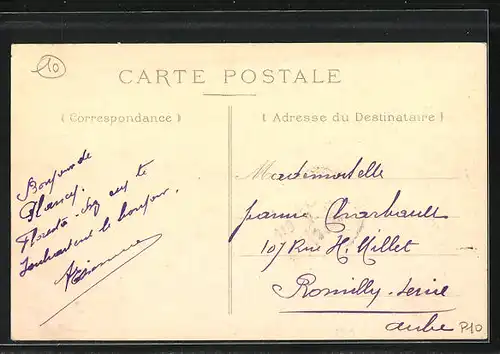 10
CARTE POSTALE
( Correspondance )
( Adresse du Destinataire )
Bonjour de
Plancy.
chez eux te
souhaitent le bonjour.
Mademoiselle
Jeanne Charbault
107 Rue H. Millet
Romilly-Seine
Aube
P10